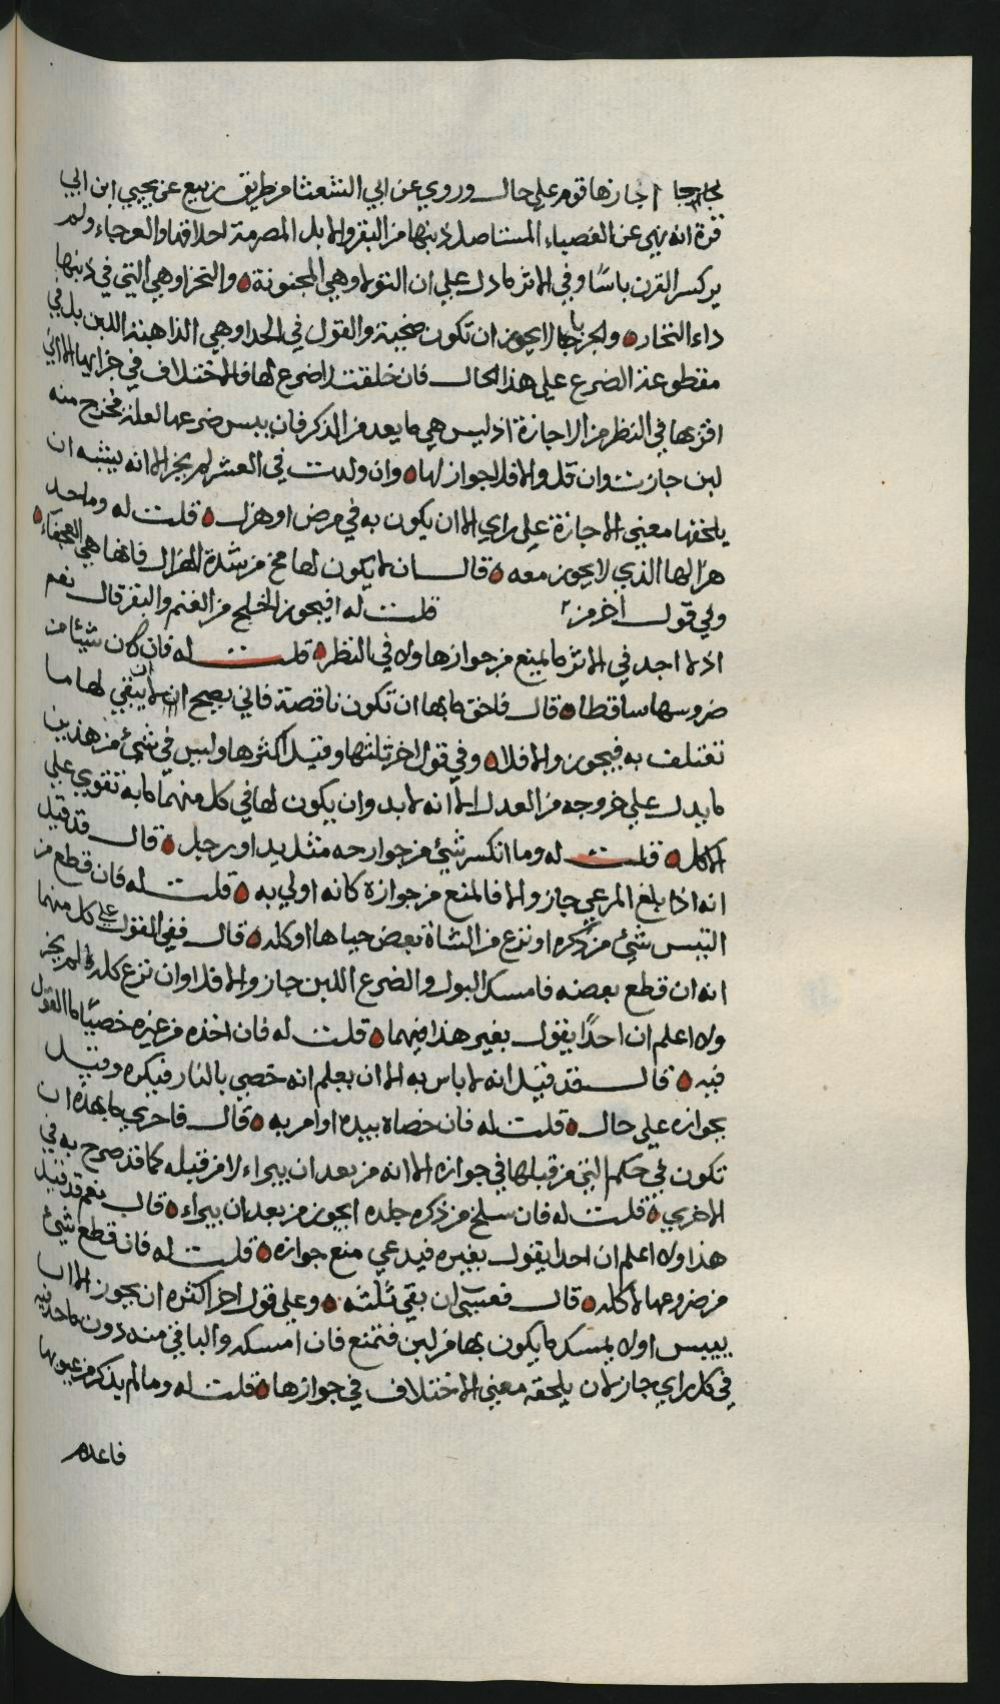 اجازها قوم على حال وروي عن ابي الشعثا من طريق ربيع عن يحيى ابن ابي
قرة انه نهي عن العضباء المستاصل ذنبها من البقر والابل المصرمة احلافها والعرجاء ولم
ير كسر القرن باسًا وفي الاثر ما دل على ان التولا وهي المجنونة والنخزا وهي التي في ذنبها
داء النخاز والجربا لا يجوز ان تكون ضحية والقول في الجدا وهي الذاهبة اللبن بل في
مقطوعة الضرع على هذا الحال فان خلقت لا ضرع لها فالاختلاف في جزايها الا اني
اقربها في النظر من الاجازة اذ ليس هي ما يعد من الذكر فان يبس ضرعها لعلة فخرج منه
لبن جازت وان قل والا فلا جواز لها وان ولدت في العشر لم يجز الا انه يشبه ان
يلحقها معنى الاجازة على راي الا ان يكون به في مرض او هزل قلت له وما حد
هزالها الذي لا يجوز معه قال ان لا يكون لها مخ من شدة الهزال فانها هي العجفاء
وفي قول آخر من قلت له افيجوز الخليج من الغنم والبقر قال نعم
اذ لا اجد في الاثر ما يمنع من جوازها ولا في النظر قلت له فان كان شيئا من
ضروسها ساقطا قال فاحق ما بها ان تكون ناقصة فاني يصح ان لا يبقى لها ما
تعتلف به فيجوز والا فلا وفي قول اخر ثلثها وقيل اكثرها وليس في شيء من هذين
ما يدل على خروجه من العدل الا انه لا بد وان يكون لها في كل منهما ما به تقوي على
الاكل قلت له وما انكسر شيء من جوارحه مثل يد او رجل قال قد قيل
انه اذا بلغ المرعي جاز والا فالمنع من جوازه كانه اولى به قلت له فان قطع من
التيس شيء من ذكره او نزع من الشاة بعض حياها او كله قال ففي القول على كل منهما
انه ان قطع بعضه فامسك البول والضرع اللبن جاز والا فلا وان نزع كله لم يجز
ولا اعلم ان احدًا يقول بغير هذا فيهما قلت له فان اخذه من غيره خصيًا ما القول
فيه قال قد قيل انه لا باس به الا ان يعلم انه خصي بالنار فيكره وقيل
بجوازه على حال قلت له فان خصاه بيده او امر به قال فاحرى ما بهذه ان
تكون في حكم التي من قبلها في جوازه الا انه من بعد ان يبراء لا من قبله كما قد صرح به في
الاخري قلت له فان سلخ من ذكره جلده ايجوز من بعد ان يبراء قال نعم قد قيل
هذا ولا اعلم ان احدا يقول بغيره فيدعي منع جوازه قلت له فان قطع شيئ
من ضروعها لا كله قال فعسى ان بقي ثلثه وعلى قول اخر اكثره ان يجوز الا ان
ييبس اولا يمسك ما يكون بها من لبن فتمنع فان امسكه والباقي منه دون ما حد فيه
في كل راي جاز لان يلحقه معنى الاختلاف في جوازها قلت له وما لم يذكر من عيوبها
فاعدم